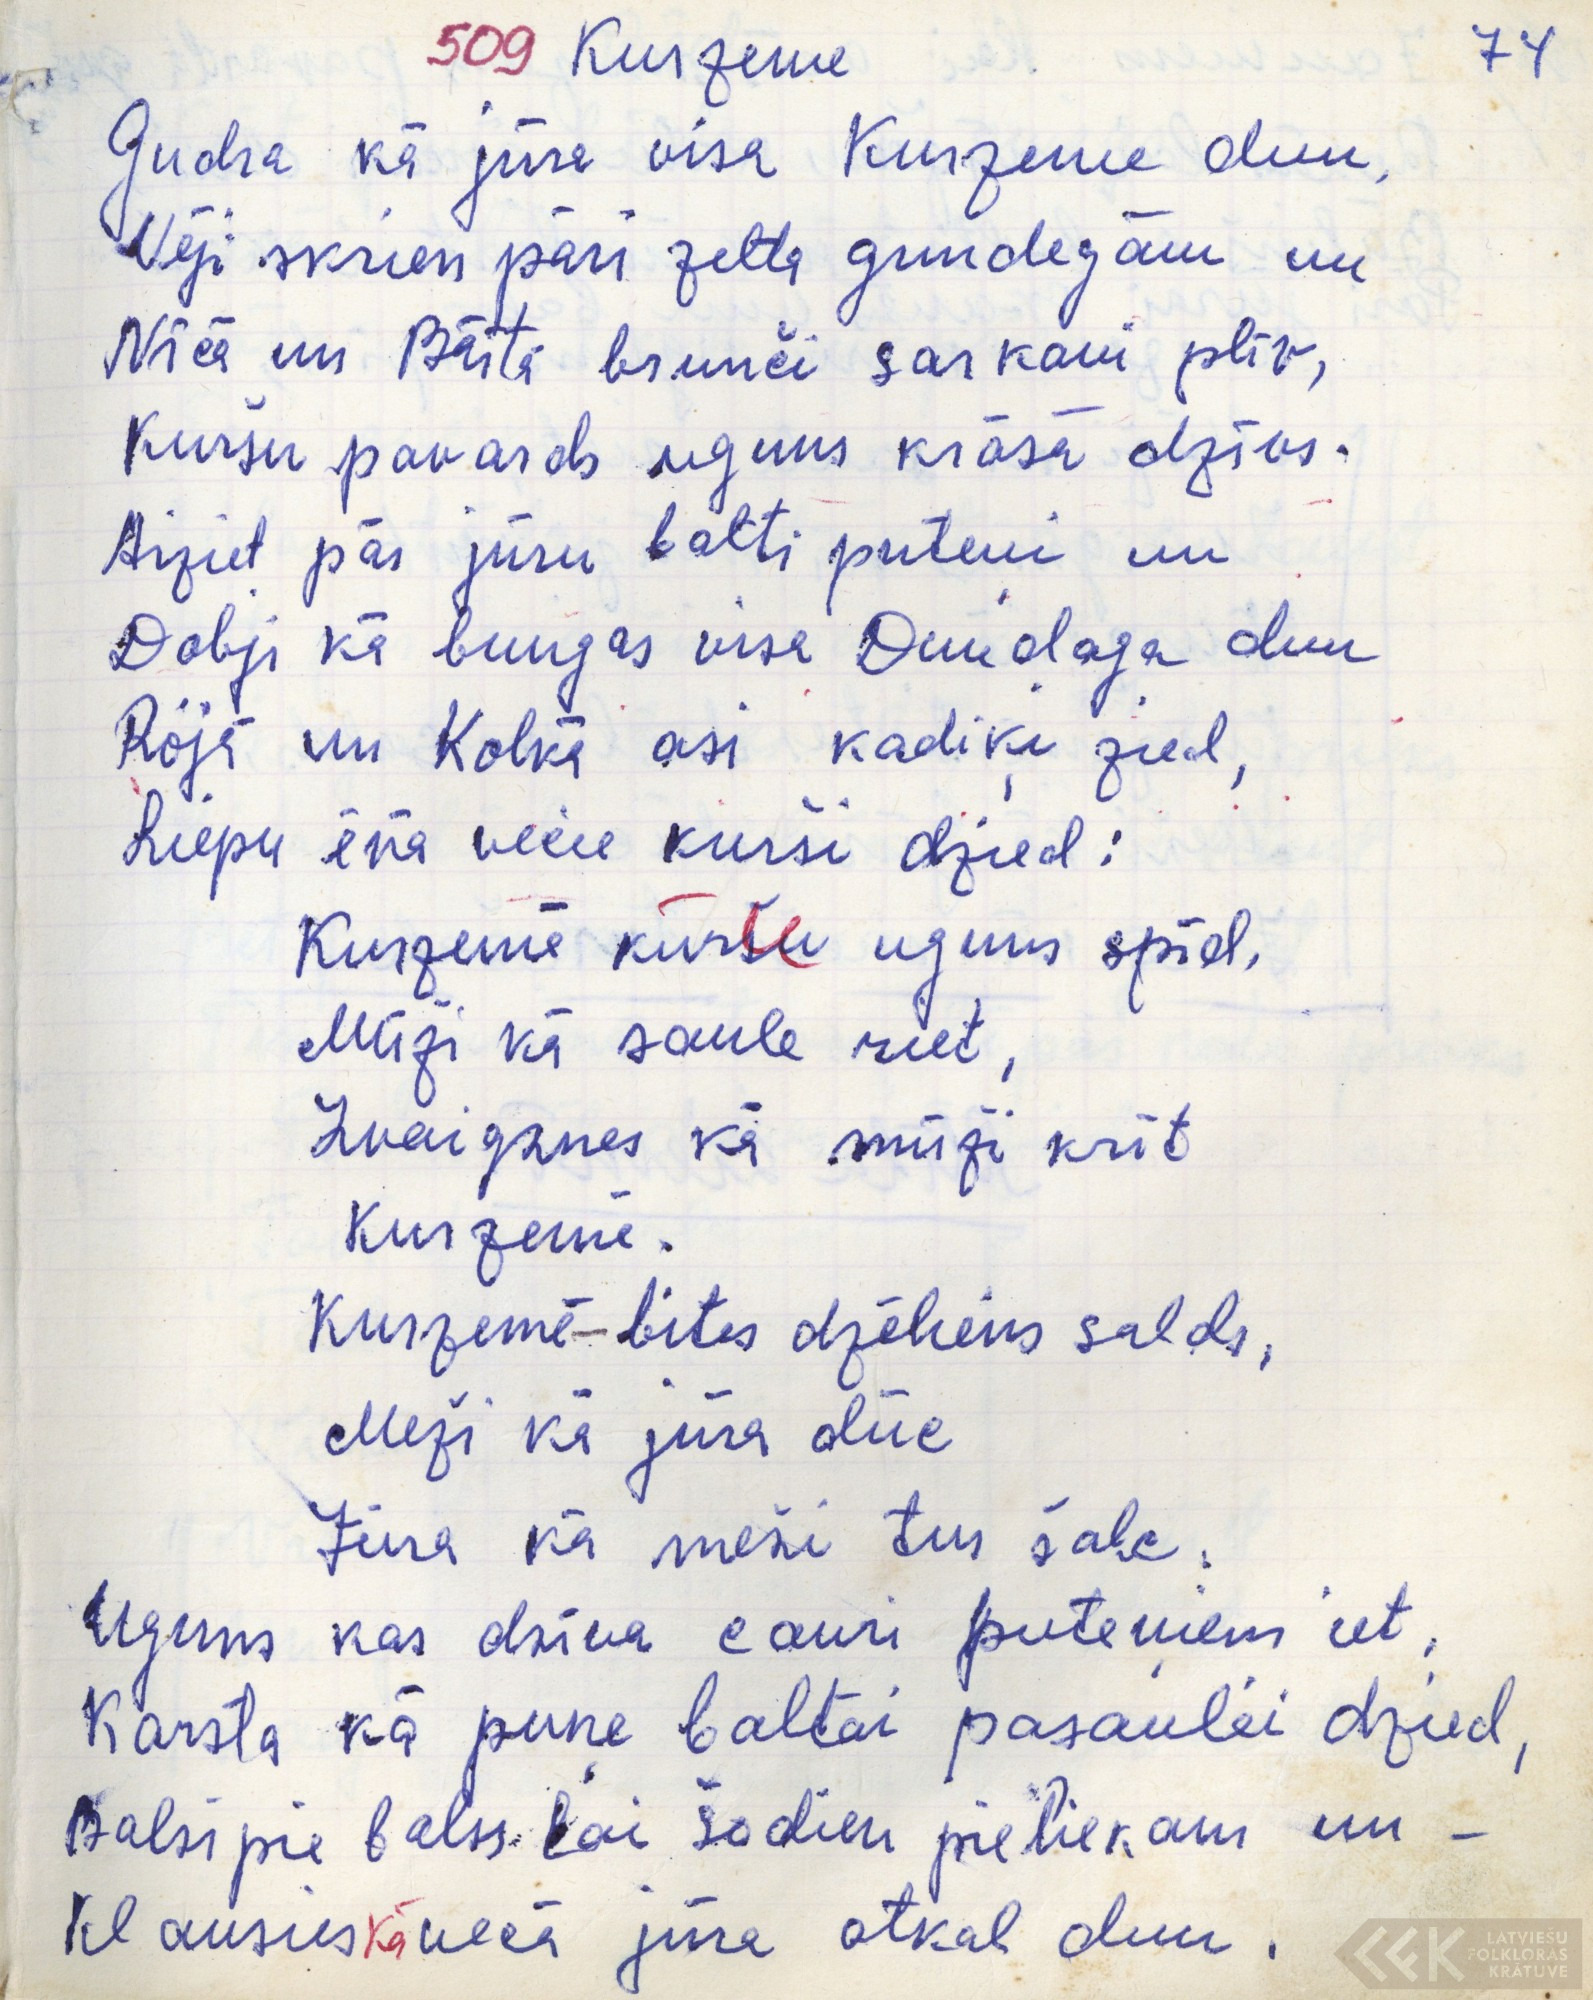 509 Kurzeme 74
Gudra kā jūra visa Kurzeme dun,
Vēji skrien pāri zelta grundegām un
Nīcā un Bārtā brunči sarkani plīv,
Kuršu pavards uguns krāsā dzīvs.
Aiziet pār jūru balti puteņi un
Dobji kā bungas visa Dundaga dun
Rojā un Kolkā asi kadiķi zied,
Liepu ēnā vecie kurši dzied:
Kurzemē kuršu uguns spīd,
Mūži kā saule riet,
Zvaigznes kā mūži krīt
Kurzemē.
Kurzemē - bites dzēliens salds,
Meži kā jūra dūc
Jūra kā meži tur šalc.
Uguns kas dzīva cauri puteņiem iet,
Karsta kā puņe baltai pasaulei dzied,
Balsi pie balss lai šodien pieliekam un -
Klausies kā vecā jūra atkal dun.
LATVIEŠU
FOLKLORAS
KRĀTUVE